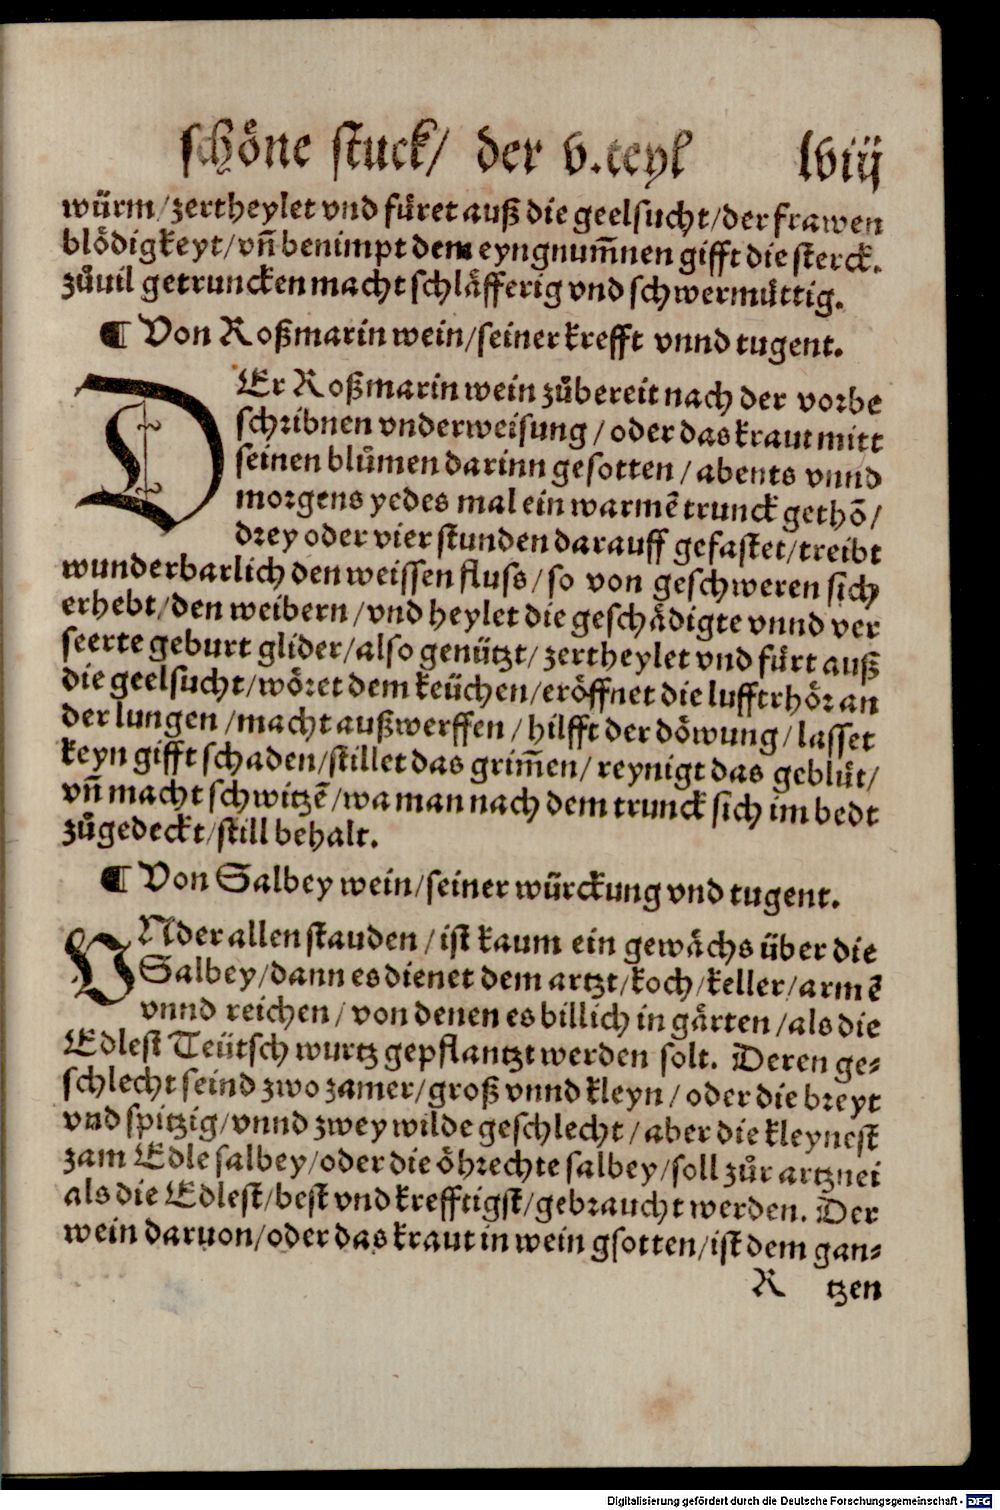 schöne stuck/ der v.teyl lviij
würm/zertheylet vnd füret auß die geelsucht/der frawen
blödigkeyt/vn̄ benimpt dem eyngnum̄nen gifft die sterck.
zůuil getruncken macht schläfferig vnd schwermüttig.
¶ Von Roßmarin wein/seiner krefft vnnd tugent.
DEr Roßmarin wein zůbereit nach der vorbe
schribnen vnderweisung/oder das kraut mitt
seinen blůmen darinn gesotten/abents vnnd
morgens yedes mal ein warmē trunck gethō/
drey oder vier stunden darauff gefastet/treibt
wunderbarlich den weissen fluss/so von geschweren sich
erhebt/den weibern/vnd heylet die geschädigte vnnd ver
seerte geburt glider/also genützt/zertheylet vnd fürt auß
die geelsucht/wöret dem keüchen/eröffnet die lufftrhör an
der lungen/macht außwerffen/hilfft der döwung/lasset
keyn gifft schaden/stillet das grim̄en/reynigt das geblüt/
vn̄ macht schwitzē/wa man nach dem trunck sich im bedt
zůgedeckt/still behalt.
¶ Von Salbey wein/seiner würckung vnd tugent.
VNder allen stauden/ist kaum ein gewächs über die
Salbey/dann es dienet dem artzt/koch/keller/armē
vnnd reichen/von denen es billich in gärten/als die
Edlest Teütsch wurtz gepflantzt werden solt. Deren ge-
schlecht seind zwo zamer/groß vnnd kleyn/oder die breyt
vnd spitzig/vnnd zwey wilde geschlecht/aber die kleynest
zam Edle salbey/oder die öhrechte salbey/soll zůr artznei
als die Edlest/best vnd krefftigst/gebraucht werden. Der
wein daruon/oder das kraut in wein gsotten/ist dem gan-
R tzen
Digitalisierung gefördert durch die Deutsche Forschungsgemeinschaft - DFG